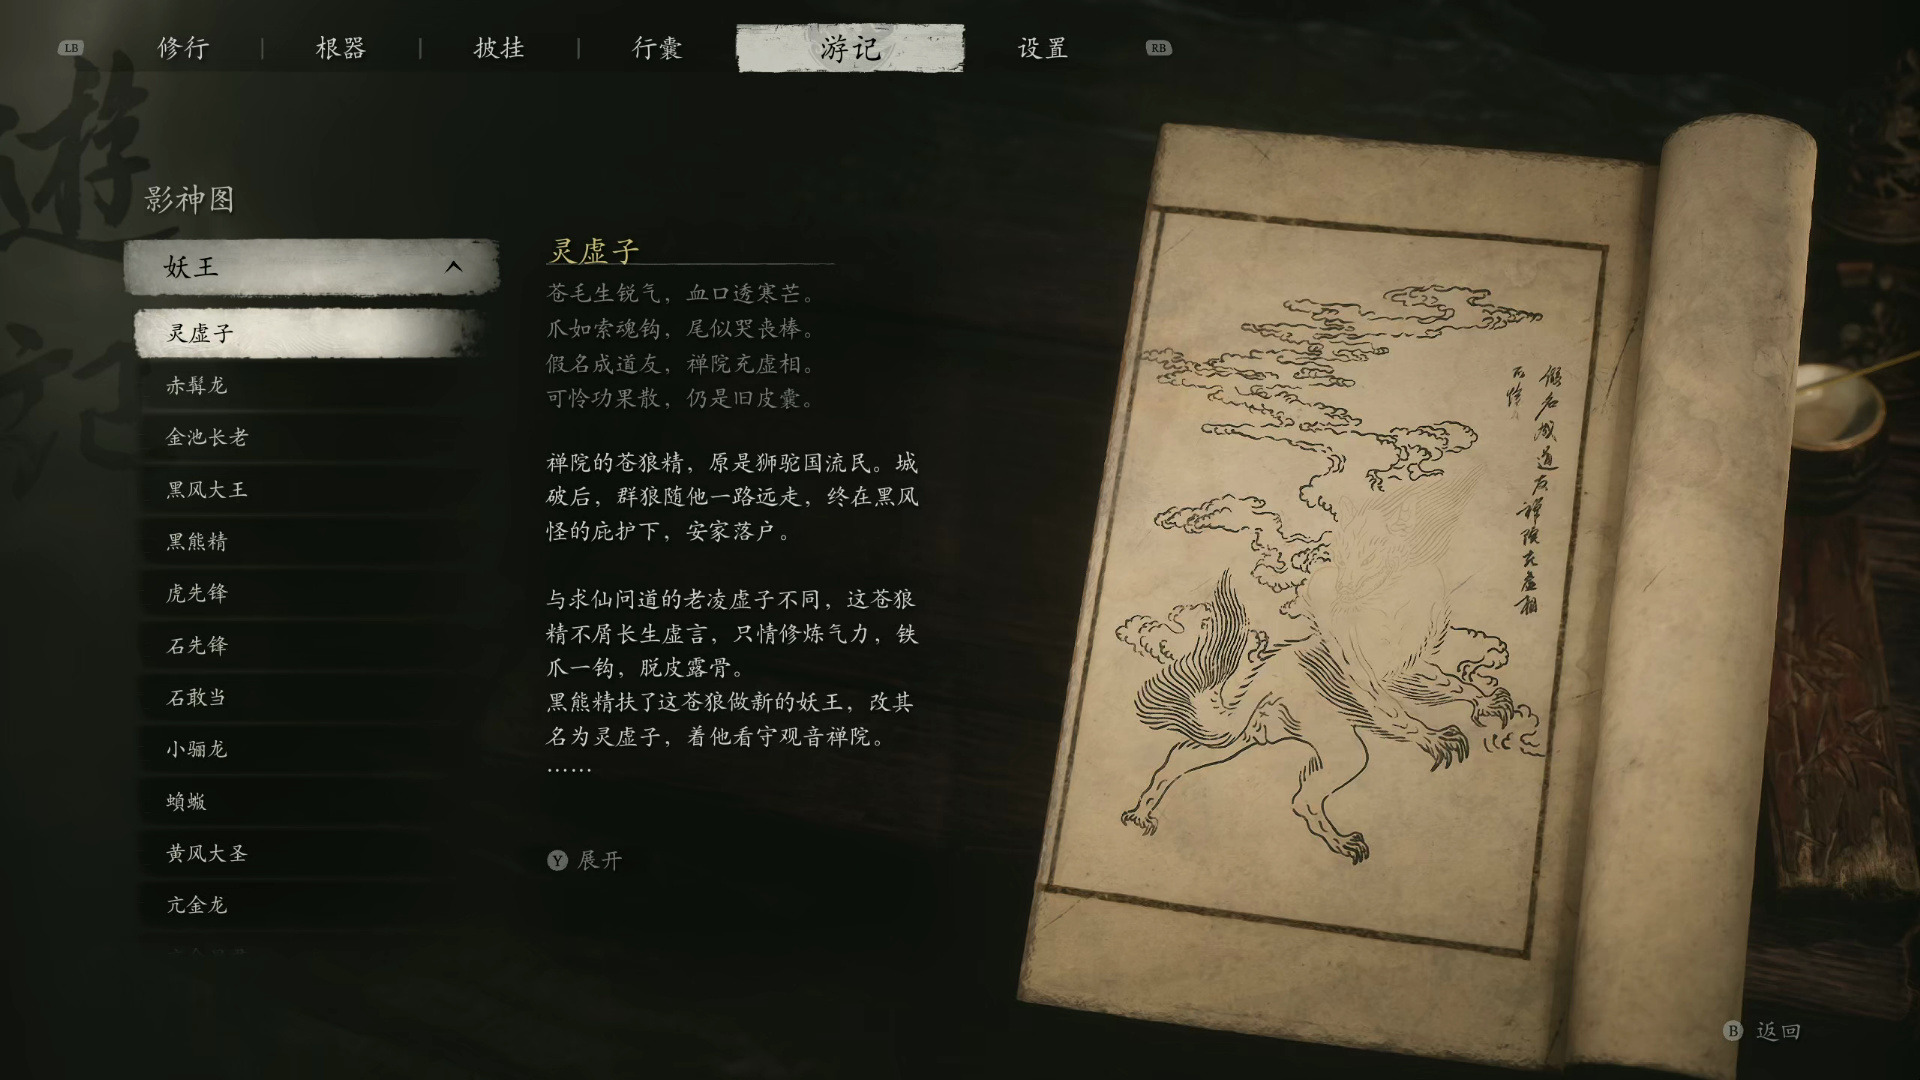 LB
修行
根器
披挂
行囊
游记
设置
RB
遊記
影神图
妖王
灵虚子
赤髯龙
金池长老
黑风大王
黑熊精
虎先锋
石先锋
石敢当
小骊龙
黄风大圣
亢金龙
灵虚子
苍毛生锐气，血口透寒芒。
爪如索魂钩，尾似哭丧棒。
假名成道友，禅院充虚相。
可怜功果散，仍是旧皮囊。
禅院的苍狼精，原是狮驼国流民。城
破后，群狼随他一路远走，终在黑风
怪的庇护下，安家落户。
与求仙问道的老凌虚子不同，这苍狼
精不屑长生虚言，只情修炼气力，铁
爪一钩，脱皮露骨。
黑熊精扶了这苍狼做新的妖王，改其
名为灵虚子，着他看守观音禅院。
……
Y 展开
假名成道友禅院充虚相
可怜
B 返回